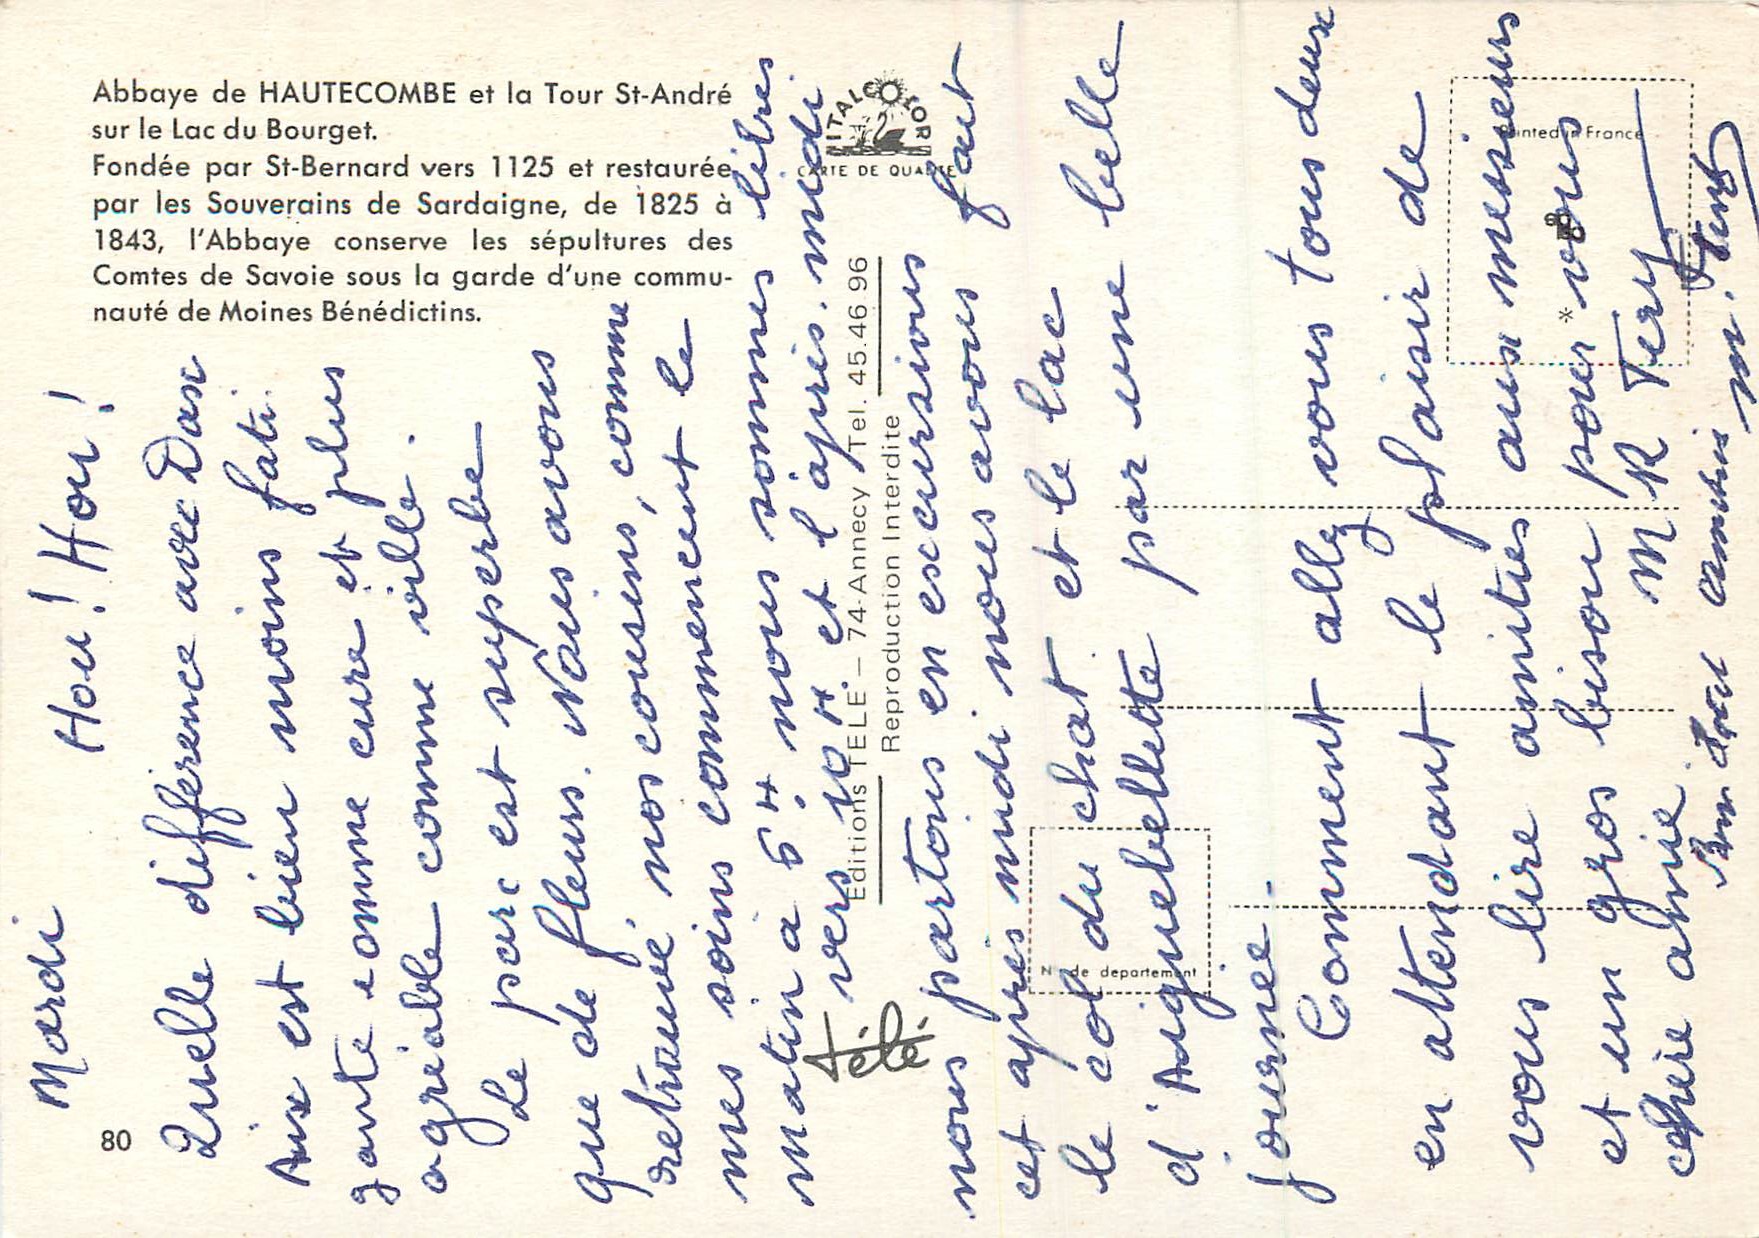 Abbaye de HAUTECOMBE et la Tour St-André
sur le Lac du Bourget.
Fondée par St-Bernard vers 1125 et restaurée
par les Souverains de Sardaigne, de 1825 à
1843, l'Abbaye conserve les sépultures des
Comtes de Savoie sous la garde d'une commu-
nauté de Moines Bénédictins.
80
ITALCOLOR
CARTE DE QUALITE
Editions TELE – 74-Annecy Tel. 45.46 96
Reproduction Interdite
Télé
Printed in France
N° de departement
Mardi Hou! Hou!
Quelle différence avec Dax
Aix est bien moins fati
gante comme cure et plus
agréable comme ville.
Le parc est superbe
que de fleurs. Nous avons
retrouvé nos cousins, comme
mes soins commencent le
matin à 6H nous sommes libres
vers 10H. et l'après. midi
nous partons en excursions
cet après midi nous avons fait
le col du chat et le lac
d'Aiguebellette par une belle
journée.
Comment allez vous tous deux
en attendant le plaisir de
vous lire amitiés aux messieurs
et un gros bisou pour vous
chère amie M R Tery